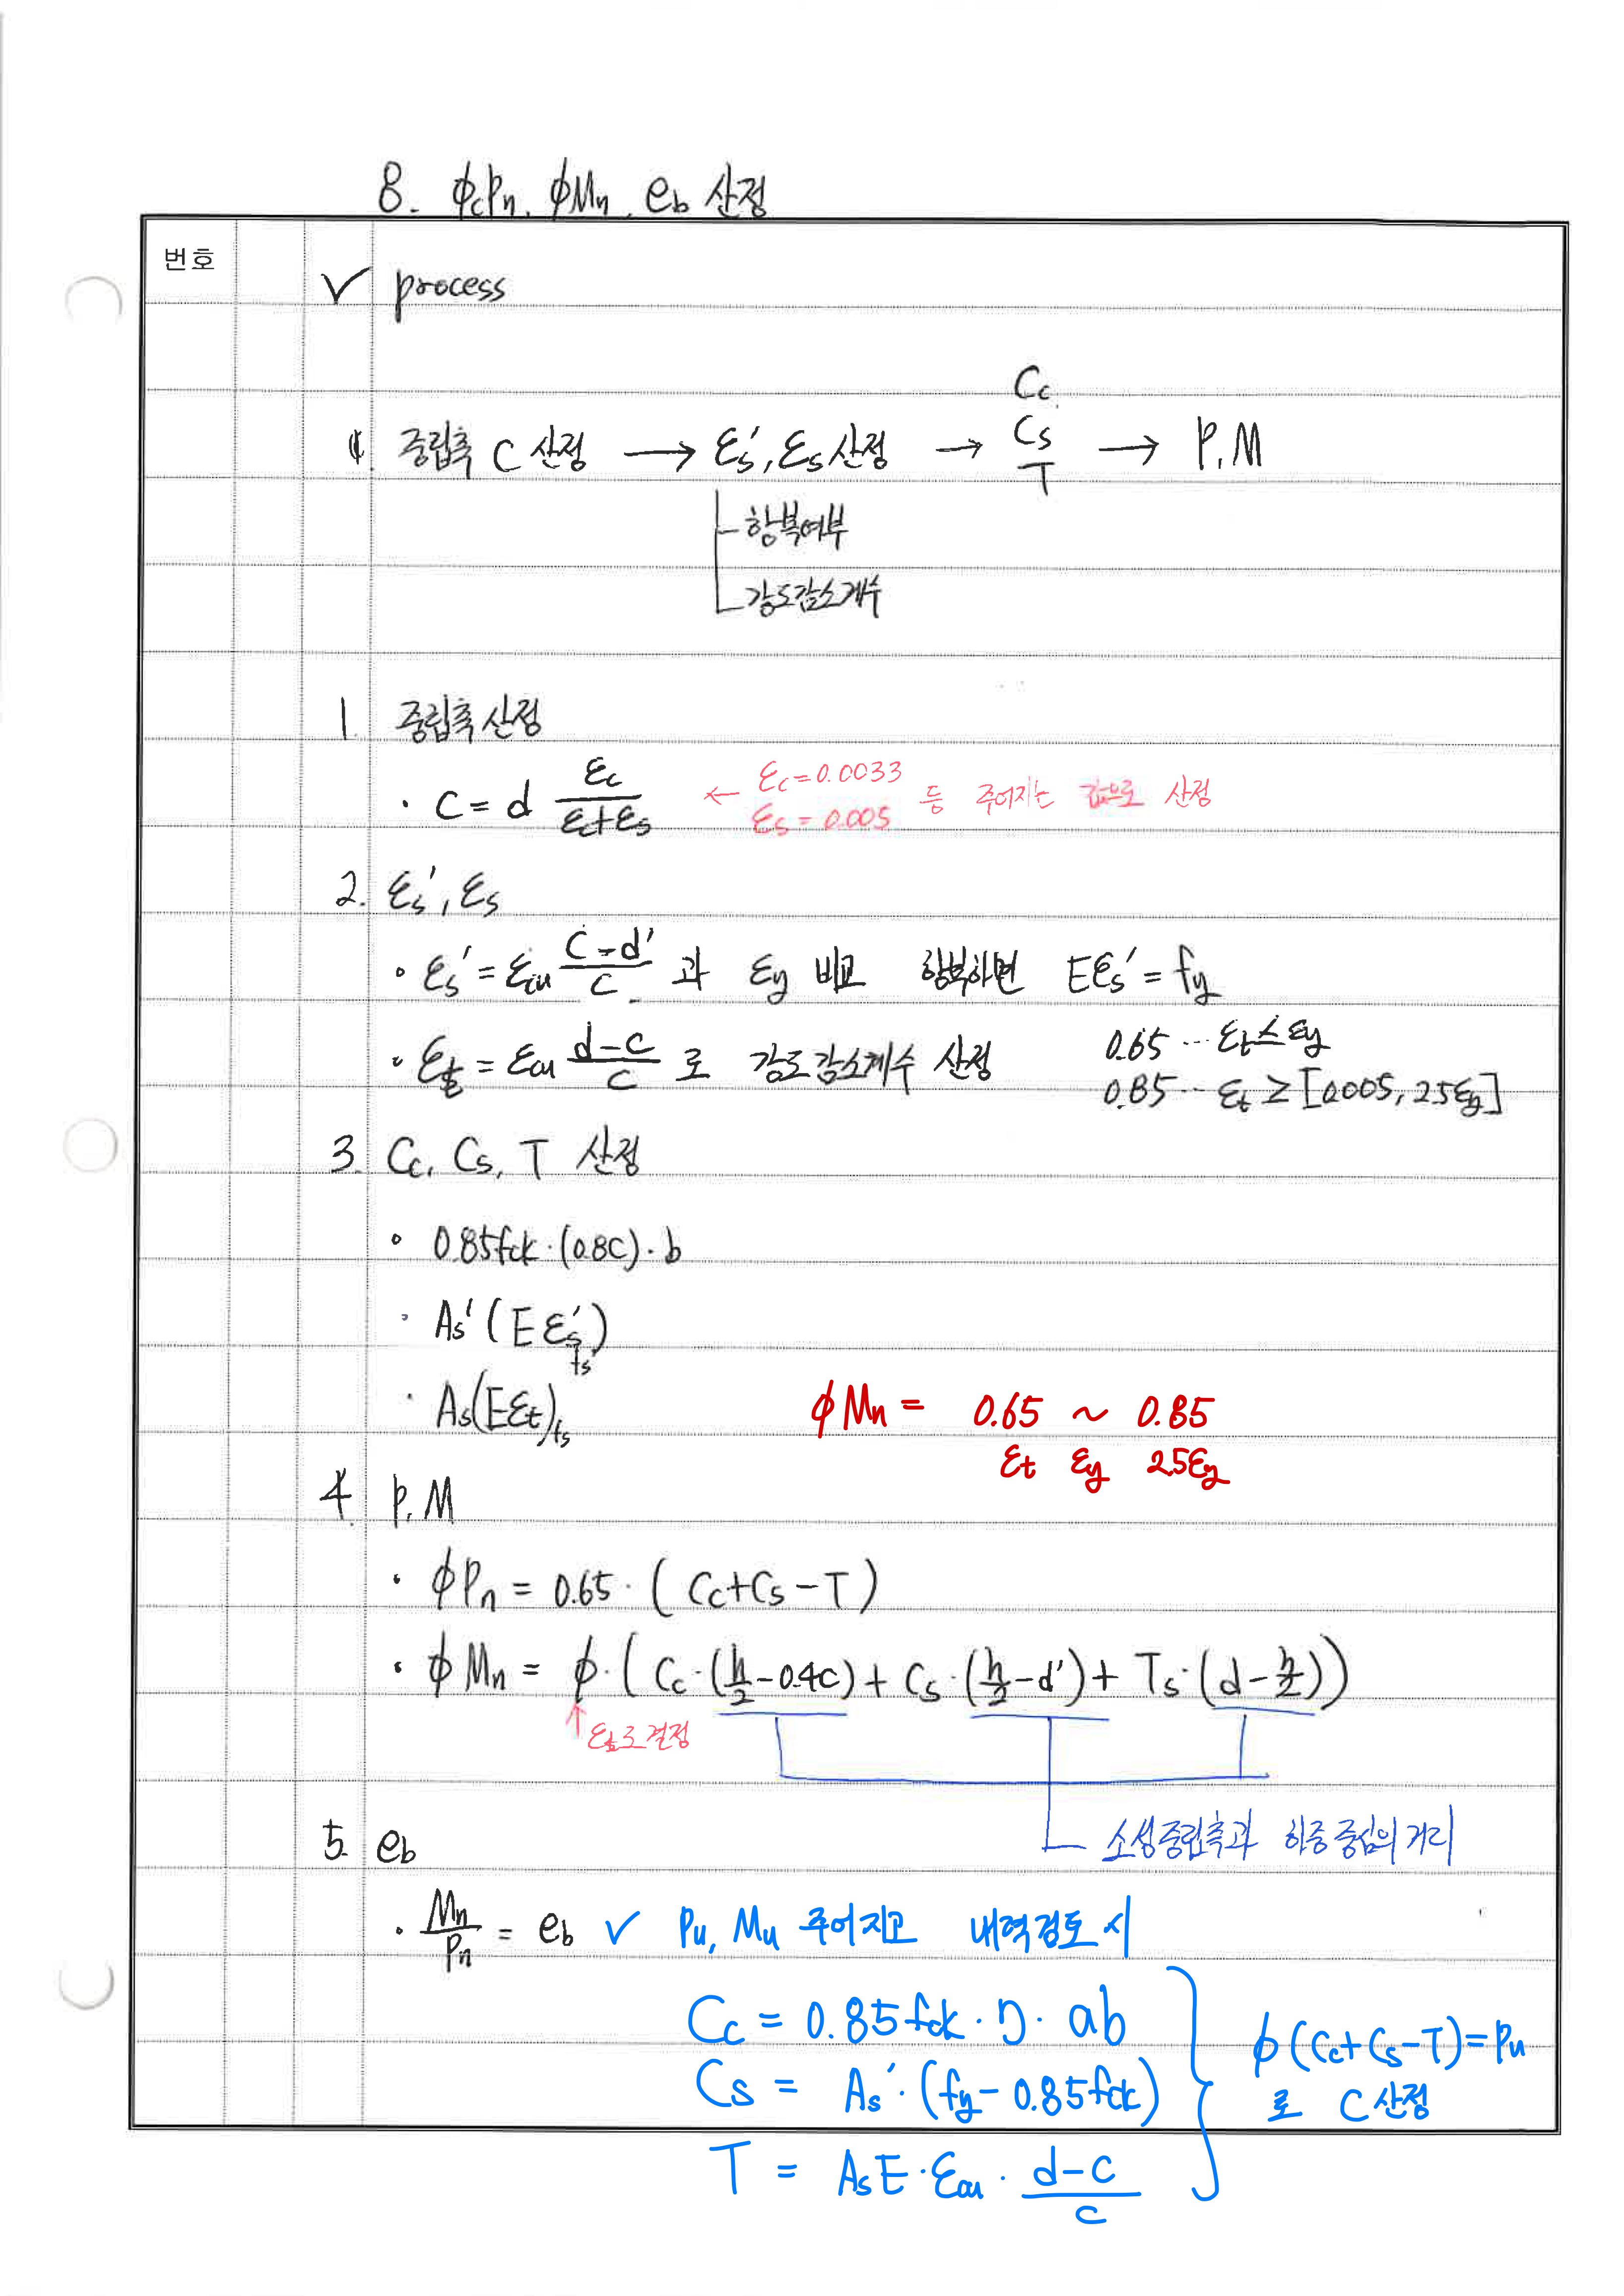 8. ϕcPn. ϕMn. eb 산정
번호
✓ process
Cc
중립축 C 산정 → εs', εs 산정 → Cs → P, M
T
항복여부
강도감소계수
1. 중립축 산정
· C = d εc/(εc+εs) ← εc=0.0033 εs=0.005 등 주어지는 값으로 산정
2. εs', εs
· εs' = εcu (C-d')/C 과 εy 비교 항복하면 Eεs' = fy
· εt = εcu (d-C)/C 로 강도감소계수 산정 0.65 ... εt ≤ εy
0.85 ... εt ≥ [0.005, 2.5εy]
3. Cc, Cs, T 산정
· 0.85fck·(0.8C)·b
· As'(Eεs') fs'
· As(Eεt) fs
ϕMn = 0.65 ~ 0.85
εt εy 2.5εy
4. P, M
· ϕPn = 0.65·(Cc+Cs-T)
· ϕMn = ϕ·(Cc·(h/2-0.4C)+Cs·(h/2-d')+Ts·(d-h/2))
↑ εt로 결정
소성중립축과 하중중심의 거리
5. eb
· Mn/Pn = eb ✓ Pu, Mu 주어지고 내력검토시
Cc = 0.85fck·η·ab
Cs = As'·(fy-0.85fck)
T = AsE·εcu·(d-C)/C
ϕ(Cc+Cs-T)=Pu
로 C 산정